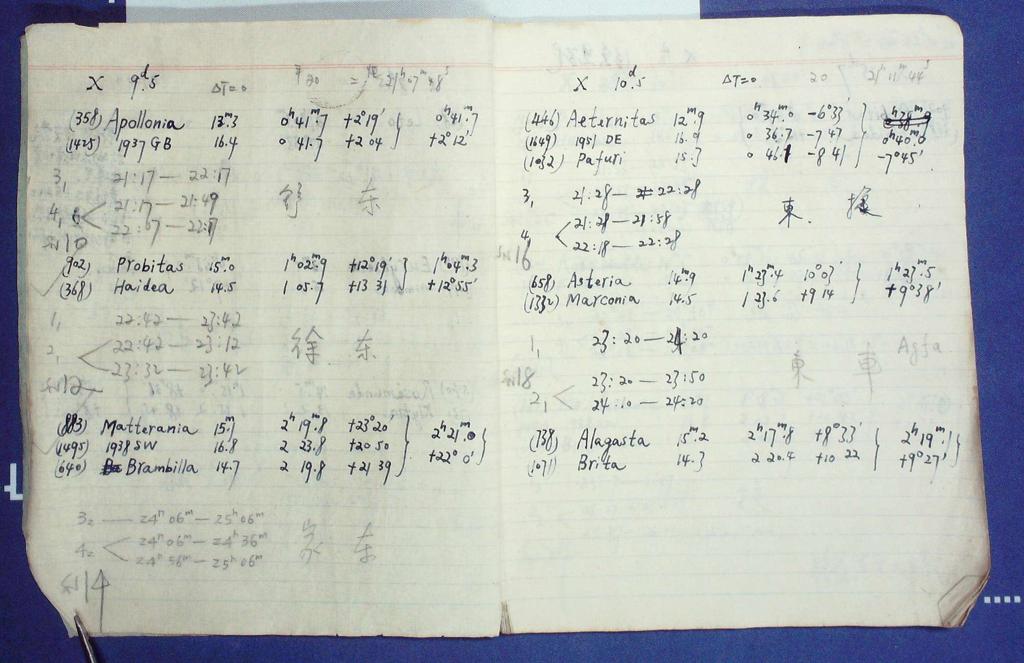 X 9ᵈ.5 ΔT=0 20 = 21ʰ07ᵐ48ˢ
(358) Apollonia 13ᵐ.3 0ʰ41ᵐ.7 +2°19' } 0ʰ41ᵐ.7
(1425) 1937 GB 16.4 0 41.7 +2 04 +2°12'
3₁ 21:17 — 22:17
4₁ < 21:17 — 21:49 东
22:07 — 22:17
10
(902) Probitas 15ᵐ.0 1ʰ02ᵐ.9 +12°19' } 1ʰ04ᵐ.3
(368) Haidea 14.5 1 05.7 +13 31 +12°55'
1₁ 22:42 — 23:42
2₁ < 22:42 — 23:12 徐 东
23:32 — 23:42
12
(883) Matterania 15ᵐ.1 2ʰ19ᵐ.8 +23°20' } 2ʰ21ᵐ.0
(1495) 1938 SW 16.8 2 23.8 +20 50 +22°0'
(640) Brambilla 14.7 2 19.8 +21 39
3₂ — 24ʰ06ᵐ — 25ʰ06ᵐ
4₂ < 24ʰ06ᵐ — 24ʰ36ᵐ 东
24ʰ56ᵐ — 25ʰ06ᵐ
14
X 10ᵈ.5 ΔT=0 20 21ʰ11ᵐ44ˢ
(446) Aeternitas 12ᵐ.9 0ʰ34ᵐ.0 -6°33'
(1649) 1951 DE 16.9 0 36.7 -7 47 } 0ʰ40ᵐ.0
(1032) Pafuri 15.7 0 46.1 -8 41 -7°45'
3₁ 21:28 — 22:28
4₁ < 21:28 — 21:58 東.
22:18 — 22:28
16
(658) Asteria 14ᵐ.9 1ʰ23ᵐ.4 10°03' } 1ʰ23ᵐ.5
(1332) Marconia 14.5 1 23.6 +9 14 +9°38'
1₁ 23:20 — 24:20
東 Agfa
2₁ < 23:20 — 23:50
24:10 — 24:20
18
(738) Alagasta 15ᵐ.2 2ʰ17ᵐ.8 +8°33' } 2ʰ19ᵐ.1
(1071) Brita 14.3 2 20.4 +10 22 +9°27'